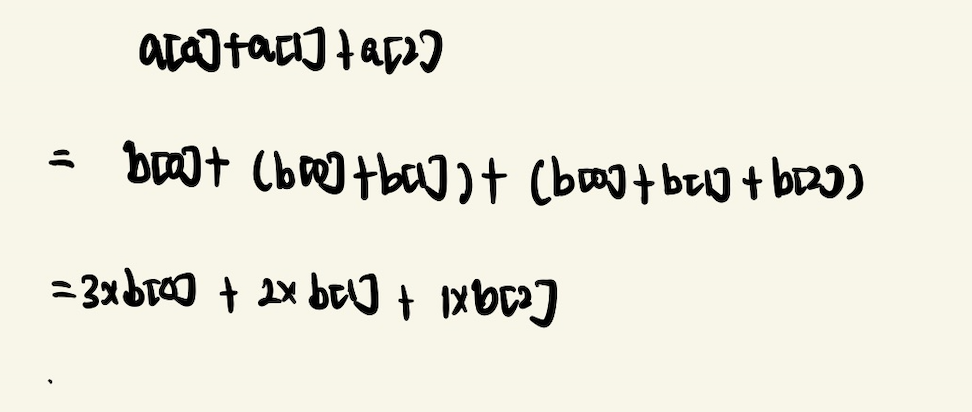 a[0]+a[1]+a[2]
= b[0]+ (b[0]+b[1])+ (b[0]+b[1]+b[2])
=3×b[0] + 2× b[1] + 1×b[2]